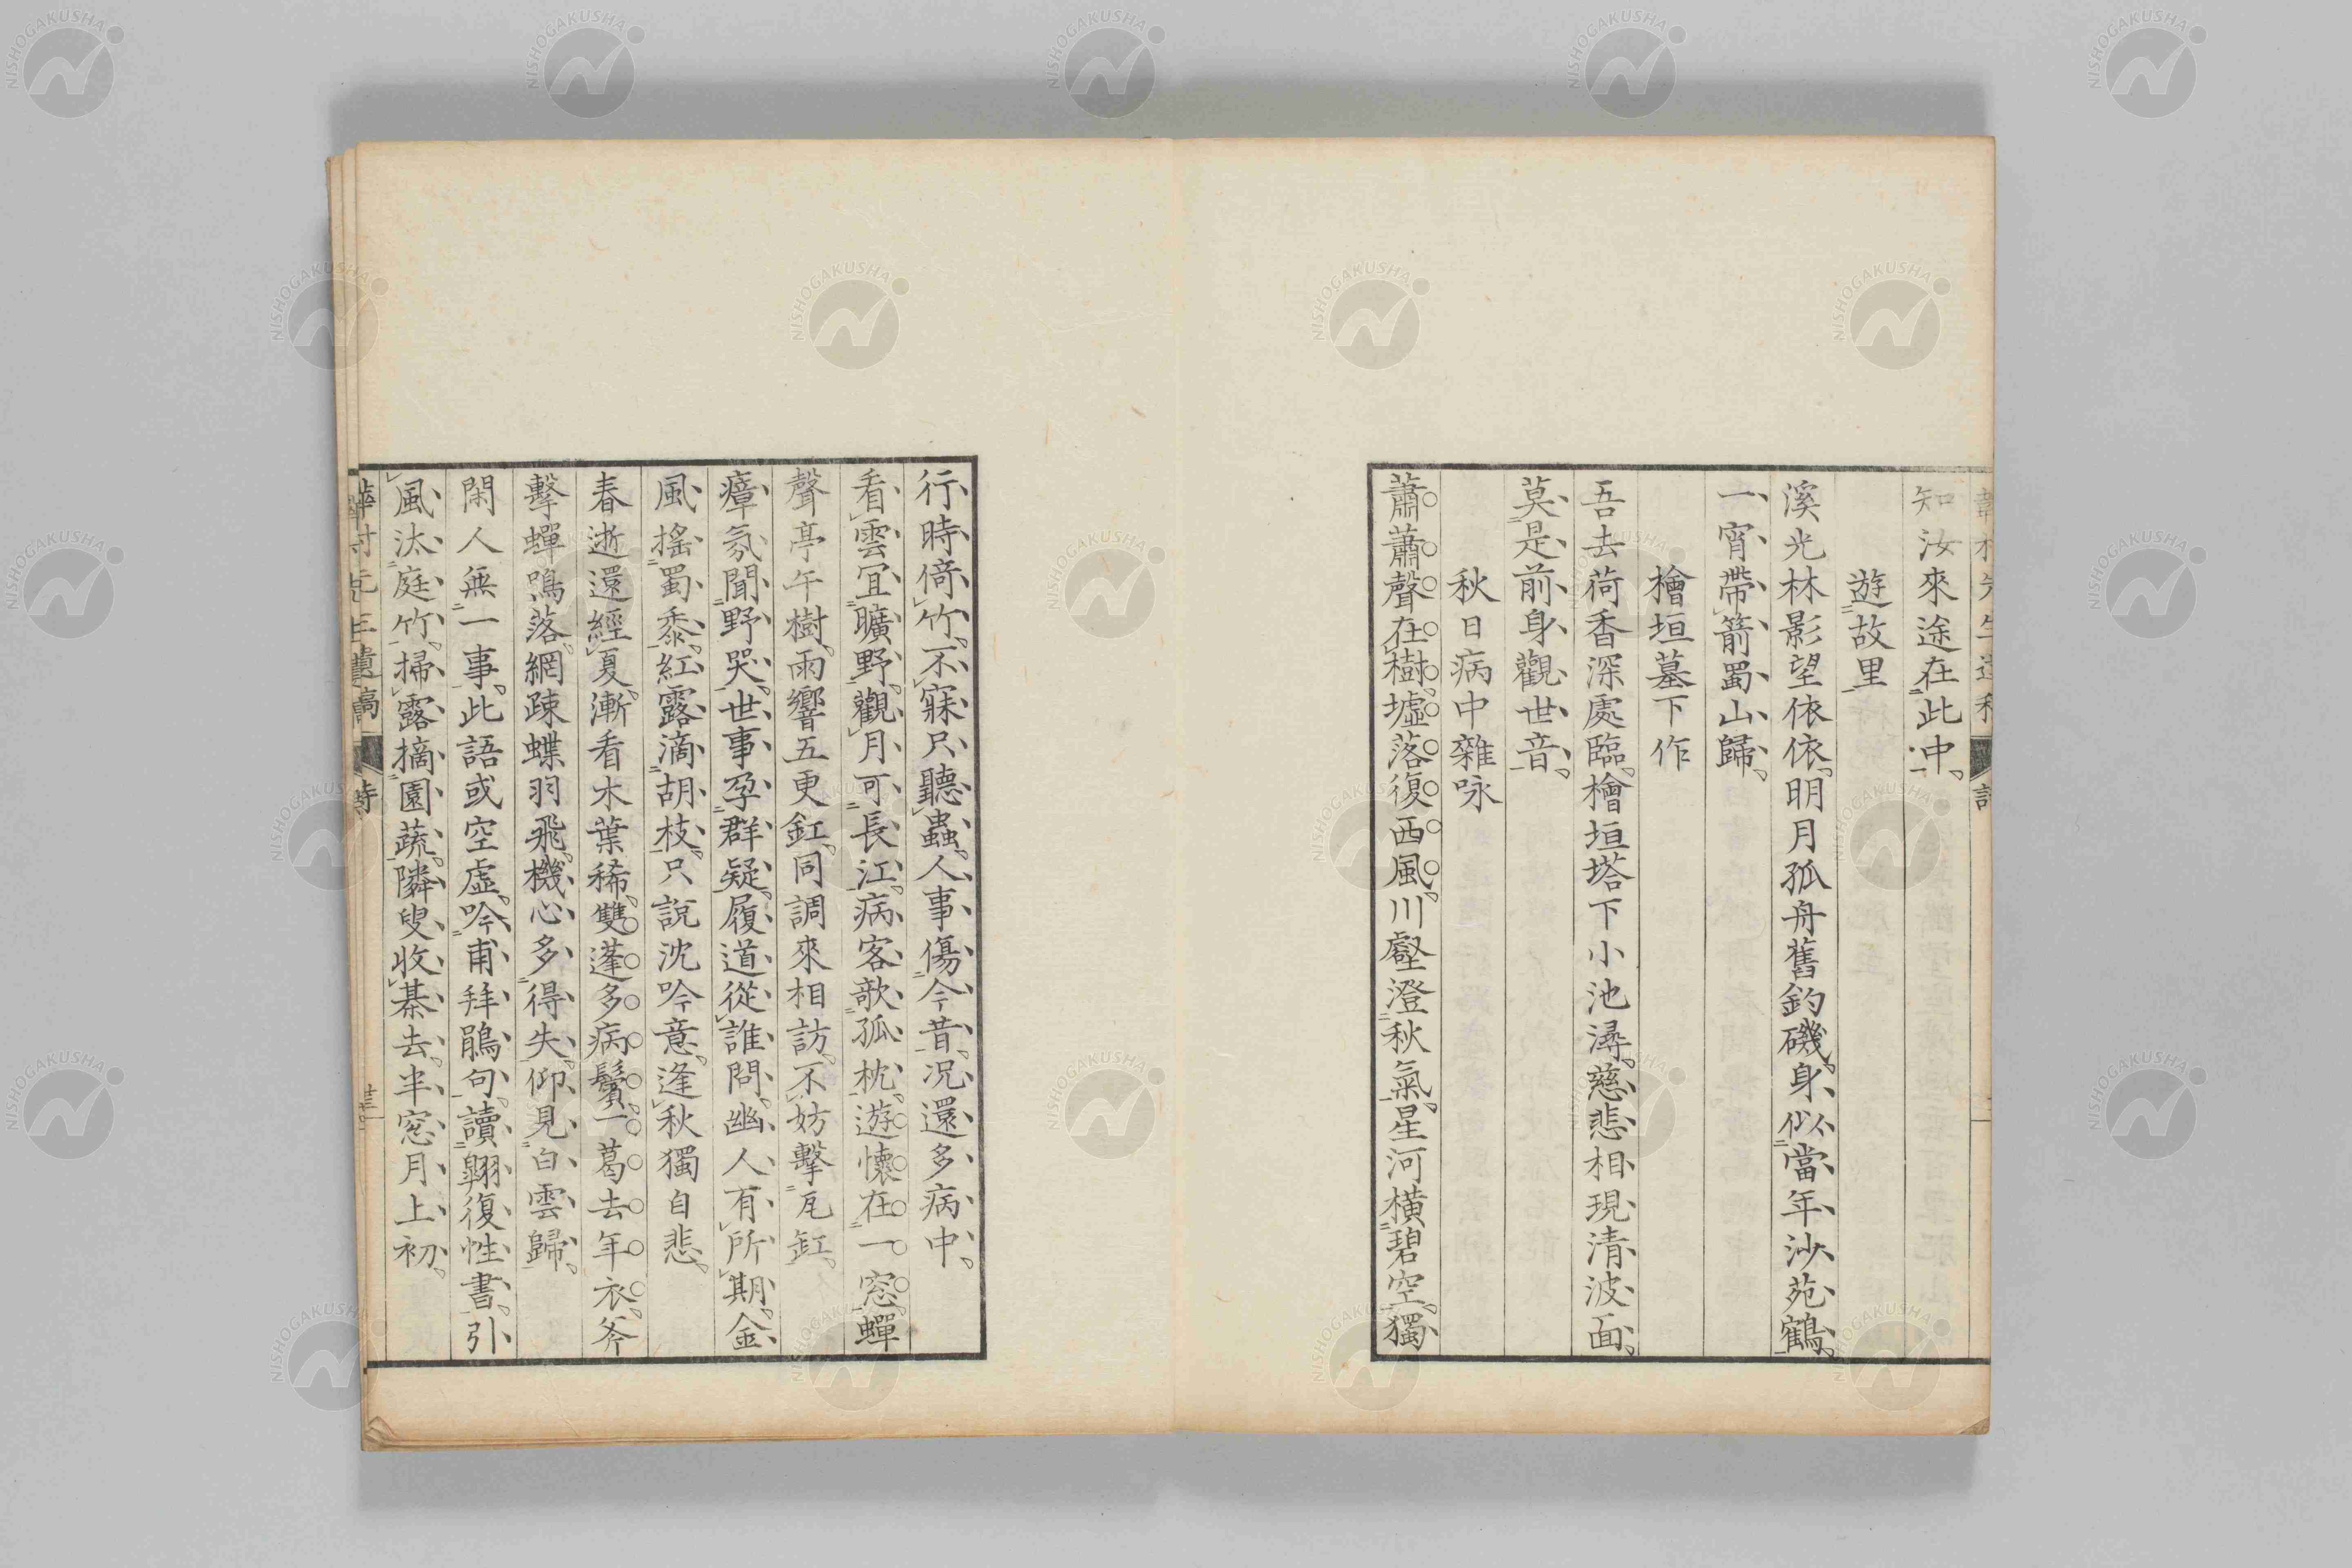 知汝來途在此中
遊故里
溪光林影望依依明月孤舟舊釣磯身似當年沙苑鶴
一宵帶箭蜀山歸
檜垣墓下作
吾去荷香深處臨檜垣塔下小池潯慈悲相現清波面
莫是前身觀世音
秋日病中雜咏
蕭蕭聲在樹墟落復西風川壑澄秋氣星河橫碧空獨
行時倚竹不寐只聽蟲人事傷今昔況還多病中
看雲宜曠野觀月可長江病客欹孤枕遊懷在一窓蟬
聲亭午樹雨響五更釭同調來相訪不妨擊瓦缸
瘴氛聞野哭世事孕群疑履道從誰問幽人有所期金
風搖蜀黍紅露滴胡枝只說沈吟意逢秋獨自悲
春逝還經夏漸看木葉稀雙蓬多病鬢一葛去年衣斧
擊蟬鳴落網疎蝶羽飛機心多得失仰見白雲歸
閑人無一事此語或空虛吟甫拜鵑句讀翺復性書引
風汰庭竹掃露摘園蔬隣叟收棊去半窓月上初
詩
NISHOGAKUSHA